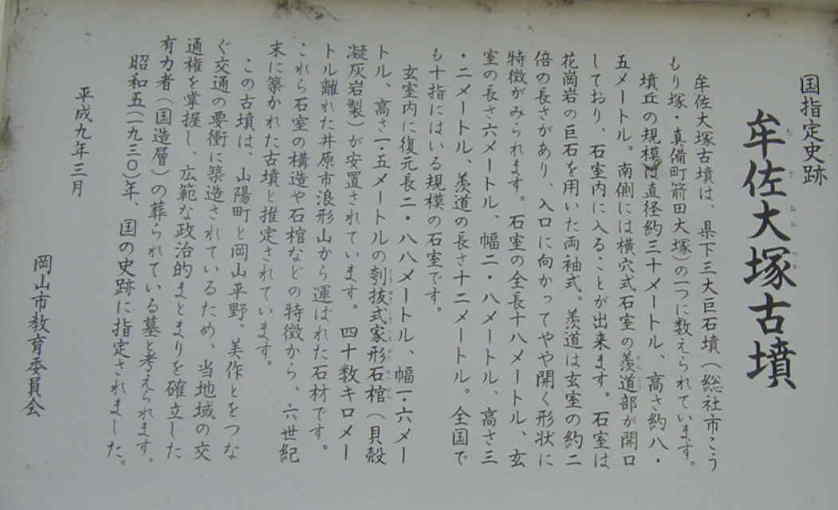 国指定史跡
牟佐大塚古墳
牟佐大塚古墳は、県下三大巨石墳（総社市こう
もり塚・真備町箭田大塚）の一つに数えられています。
墳丘の規模は直径約三十メートル、高さ約八・
五メートル。南側には横穴式石室の羨道部が開口
しており、石室内に入ることが出来ます。石室は
花崗岩の巨石を用いた両袖式。羨道は玄室の約二
倍の長さがあり、入口に向かってやや開く形状に
特徴がみられます。石室の全長十八メートル、玄
室の長さ六メートル、幅二・八メートル、高さ三
・二メートル、羨道の長さ十二メートル。全国で
も十指にはいる規模の石室です。
玄室内に復元長二・八八メートル、幅一・六メー
トル、高さ一・五メートルの刳抜式家形石棺（貝殻
凝灰岩製）が安置されています。四十数キロメー
トル離れた井原市浪形山から運ばれた石材です。
これら石室の構造や石棺などの特徴から、六世紀
末に築かれた古墳と推定されています。
この古墳は、山陽町と岡山平野、美作とをつな
ぐ交通の要衝に築造されているため、当地域の交
通権を掌握し、広範な政治的まとまりを確立した
有力者（国造層）の葬られている墓と考えられます。
昭和五（一九三〇）年、国の史跡に指定されました。
平成九年三月
岡山市教育委員会